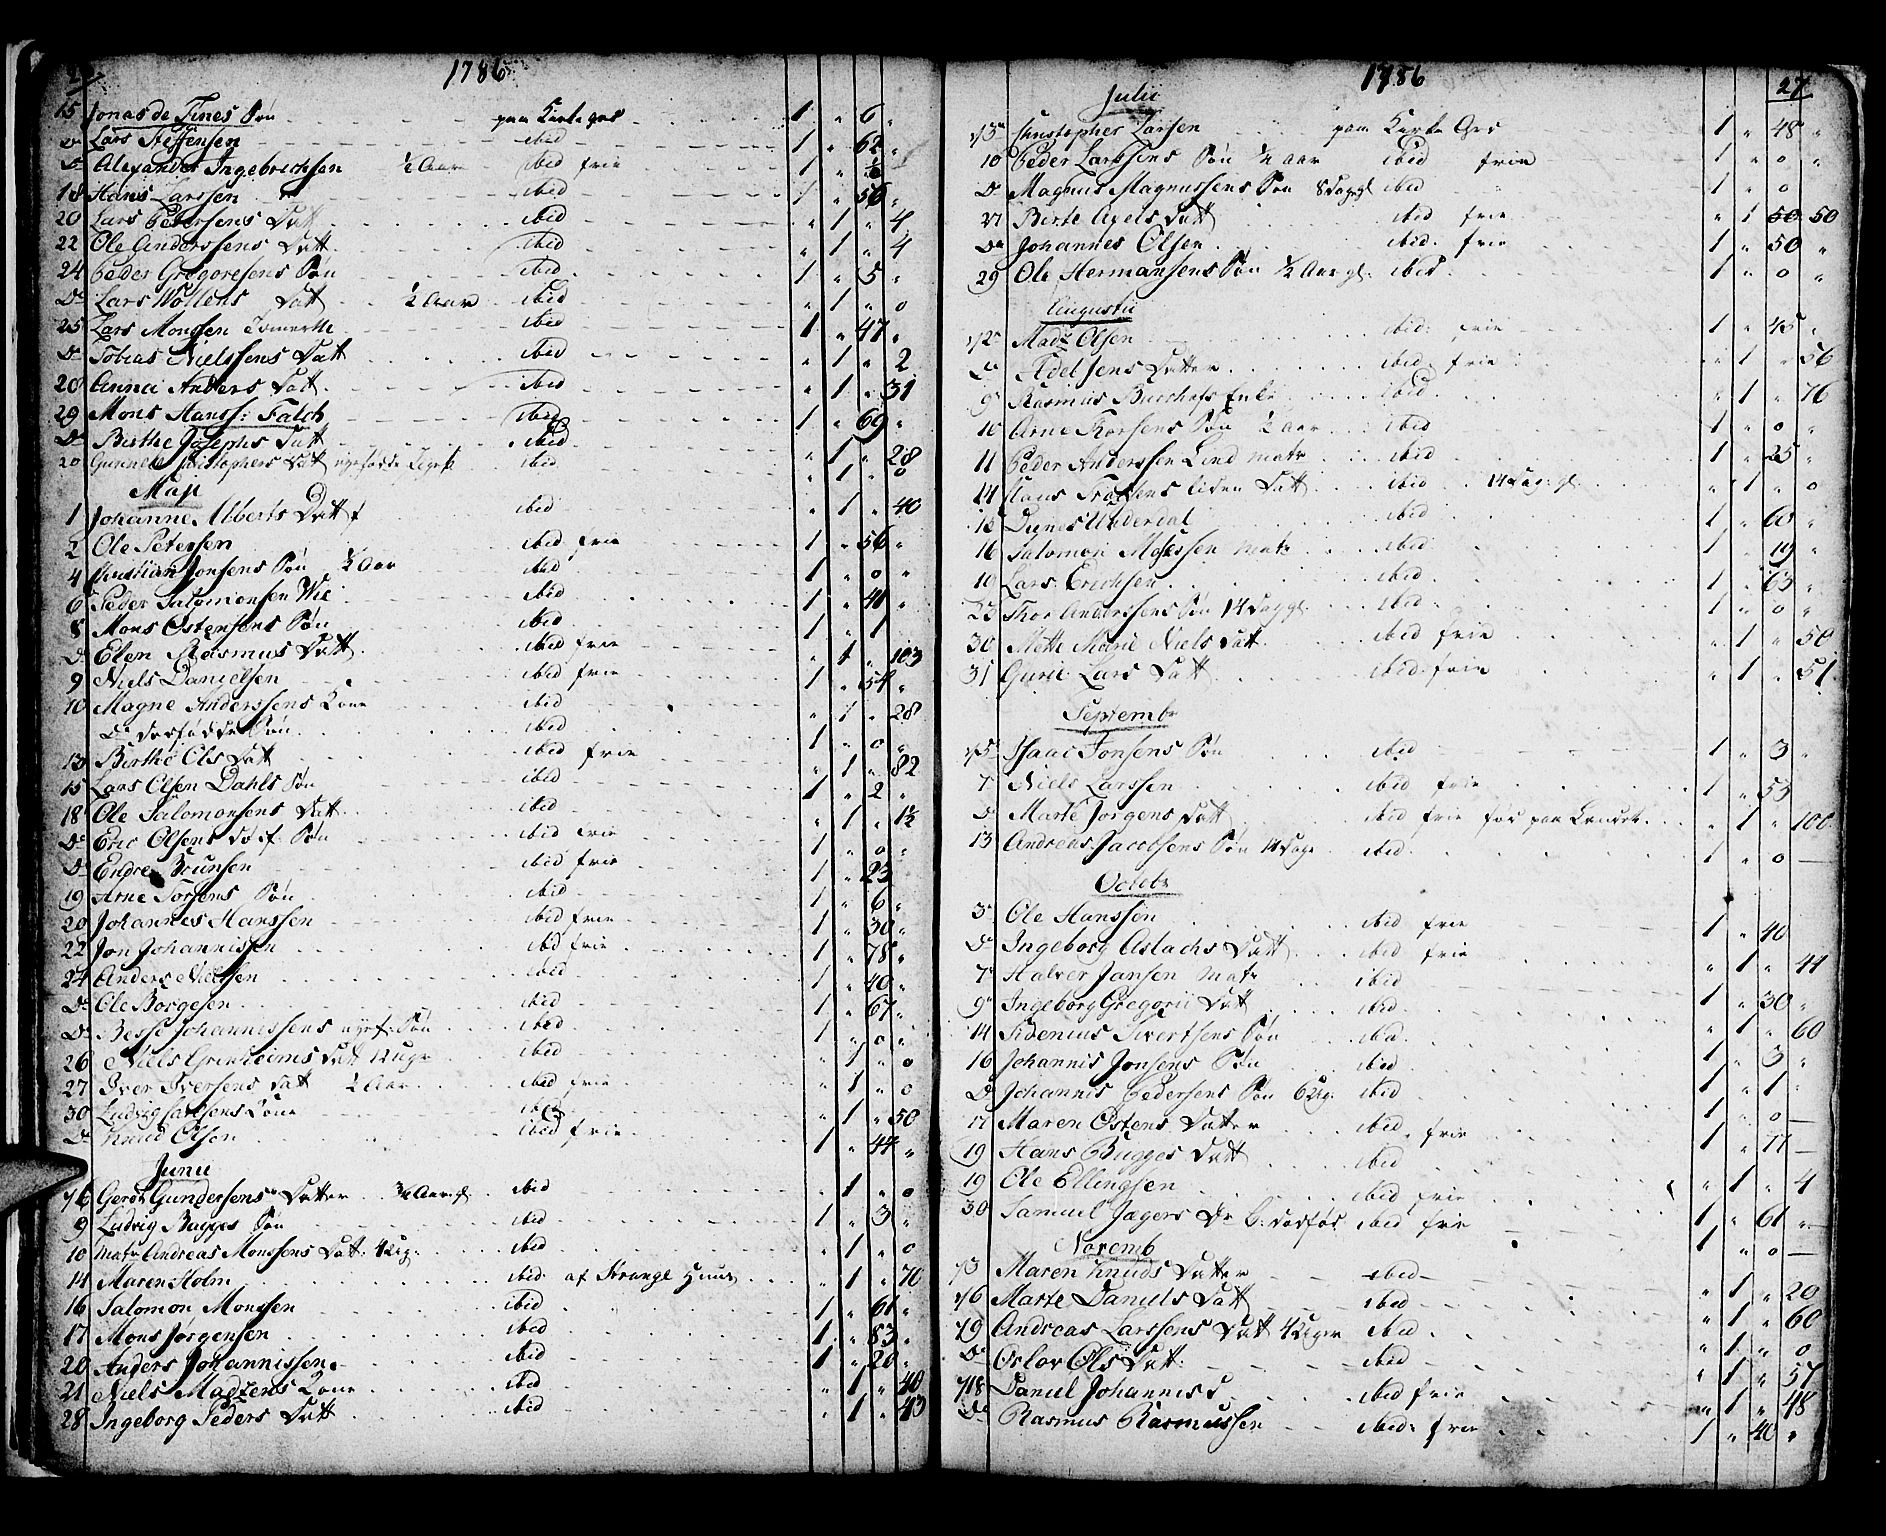 1786
15 Jonas de Fines Søn paa Kirkegrd 1 " 6 "
Do Lars Steffensen ibid 1 " 62 "
Do Alexander Ingebrichsen ½ Aar ibid frie 1 " ½
18 Hans Larssen ibid 1 " 56 "
20 Lars Pedersens Datt ibid " 1 " 4
22 Ole Anderssens Datt ibid " 1 " 4
24 Peder Gregoresens Søn ibid 1 " 5 "
Do Lars Wollens Datt ½ Aar ibid " 1 " 0
25 Lars Monssen ibid 1 " 47 "
Do Tobias Nielssens Datt ibid " 1 " 2
28 Anna Anders Datt ibid " 1 " 31
29 Mons Hanss: Falch ibid 1 " 69 "
Do Birthe Josephs Datt ibid " 1 " 28
Christophers Datt ibid " 1 " 0
Maji
1 Johanne Alberts Datt ibid " 1 " 40
2 Ole Petersen ibid frie 1 " 56 "
4 Christian Jonsens Søn ½ Aar ibid 1 " 0 "
6 Peder Salomonsen Wie ibid 1 " 41 "
8 Mons Ostensens Søn ibid 1 " 1
Do Elen Rasmus Datt ibid frie " 1 " 103
9 Niels Danielsen ibid frie 1 " 54 "
10 Magne Anderssens Kone ibid " 1 " 28
Do dødfødde Søn ibid 1 " 0 "
13 Birthe Ols Datt ibid frie " 1 " 82
15 Lars Olsen Dahls Søn ibid 1 " 2 "
18 Ole Salomonsens Datt ibid " 1 " 1½
Do Eric Olsens dø: f. Søn ibid frie 1 " 0 "
Do Endre Brunsen ibid frie 1 " 23
19 Arne Torsens Søn ibid 1 " 6 "
20 Johannes Hanssen ibid frie 1 " 30 "
22 Jon Johannissen ibid frie 1 " 78 "
24 Anders Nielssen ibid 1 " 40 "
Do Ole Borgesen ibid 1 " 61 "
Do Besse Johannissens nyef: Søn ibid 1 " 0 "
26 Niels Grinheims Datt 12 Uger ibid " 1 " 0
27 Iver Iversens Datt ½ Aar ibid frie " 1 " 0
30 Ludvig Carlsens Kone ibid " 1 " 50
Do Knud Olsen ibid frie 1 " 44 "
Junii
Gerdt Gundersens Datter ¾ Aar gl. ibid " 1 " 0
9 Ludvig Bagges Søn ibid 1 " 3 "
10 Matr Andreas Monssens Datt. 4 Ug. ibid " 1 " 0
14 Maren Holm ibid af Strange Huus " 1 " 70
16 Salomon Monssen ibid 1 " 61 "
17 Mons Jørgensen ibid 1 " 83 "
20 Anders Johannissen ibid 1 " 20 "
21 Niels Madzens Kone ibid " 1 " 40
28 Ingeborg Peders Datt ibid " 1 " 43
1786 27
Julii
Christopher Larsen paa Kirke Grd 1 " 48 "
10 Peder Larssens Søn ½ Aar ibid frie 1 " 0 "
Do Magnus Magnussens Søn 8 Dag gl ibid 1 " 0
27 Birte Axels Datt ibid frie " 1 50 50
Do Johannes Olsen ibid frie 1 " 50 "
29 Ole Hermansens Søn ½ Aar gl. ibid 1 " 0 "
Augustii
Madz Olsen ibid: frie 1 " 45 "
Datter ibid frie " 1 " 56
9 Rasmus Enke ibid " 1 " 76
10 Arne Thorsens Søn ½ Aar ibid 1 " 0 "
11 Peder Anderssen Lind matr ibid 1 " 25 "
14 Claus liden Datt ibid 14 Dag: gl. " 1 " 0
Underdal ibid 1 " 60 "
16 Salomon Mosessen matr ibid 1 " 19 "
Lars Erichsen ibid 1 " 63 "
23 Thor Anderssens Søn 14 Dag gl. ibid 1 " 0 "
30 Mette Marie Niels Datt ibid frie " 1 " 50
31 Gurie Lars Datt ibid frie " 1 " 51
Septembr
Isaac Jonsens Søn ibid 1 " 3 "
7 Niels Larssen ibid frie 1 " 53
Do Marte Jørgens Datt ibid frie før paa Landet " 1 " 100
13 Andreas Jacobsens Søn 14 Dage ibid 1 " 0
Octobr
3 Ole Hanssen ibid frie 1 " 40
Do Ingeborg Aslachs Datt ibid frie " 1 " 44
7 Halver Jansen matr ibid 1 " 30 "
9 Ingeborg Gregorii Datt ibid " 1 " 60
14 Sidenius Sivertsens Søn ibid 1 " 3 "
16 Johannis Jonsens Søn ibid 1 " 1
Do Johannis Pedersens Søn 6 Ug. ibid 1 " 0
17 Maren Ostens Datter ibid frie
19 Hans Bugges Datt ibid " 1 " 4
19 Ole Ellingsen ibid frie 1 " 61 "
30 Samuel Jægers Dr B: dødfød ibid frie 1 " 0
Novemb
Maren Knuds Datter ibid " 1 " 20
Marte Daniels Datt ibid " 1 " 60
Andreas Larssens Datt 4 Uger ibid " 1 " 0
Do Oslov Ols Datt: ibid " 1 " 57
Daniel Johannis D. ibid frie " 1 " 48
Do Rasmus Rasmussen ibid: frie 1 " 40 "